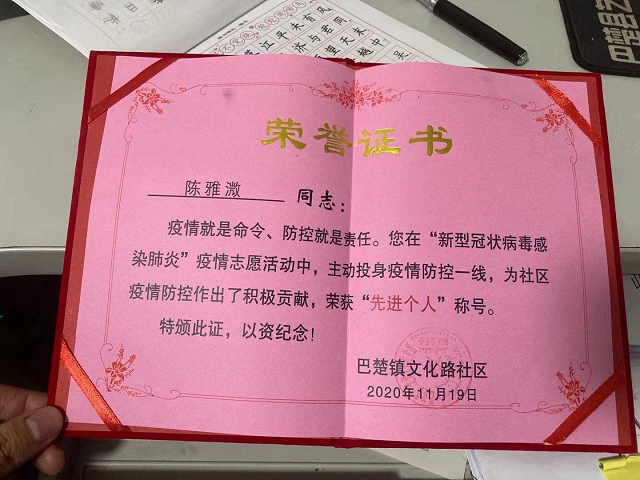 荣誉证书
陈雅溦 同志：
疫情就是命令、防控就是责任。您在“新型冠状病毒感
染肺炎”疫情志愿活动中，主动投身疫情防控一线，为社区
疫情防控作出了积极贡献，荣获“先进个人”称号。
特颁此证，以资纪念！
巴楚镇文化路社区
2020年11月19日